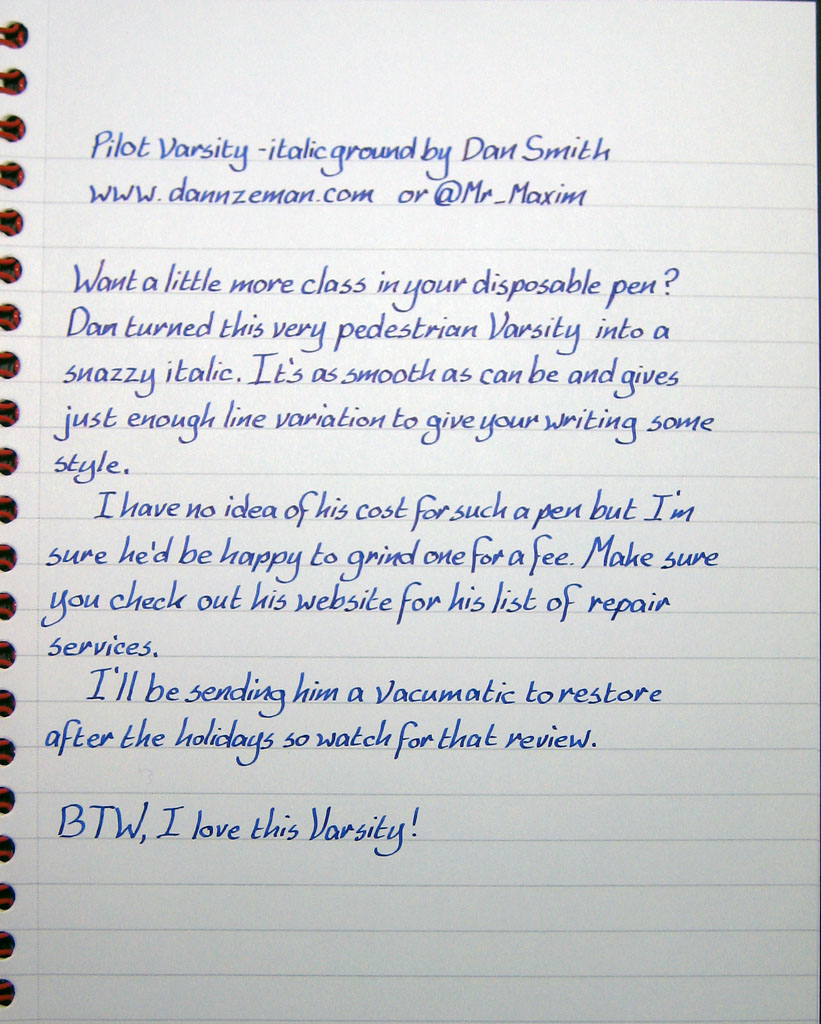 Pilot Varsity - italic ground by Dan Smith
www.dannzeman.com or @Mr_Maxim
Want a little more class in your disposable pen?
Dan turned this very pedestrian Varsity into a
snazzy italic. It's as smooth as can be and gives
just enough line variation to give your writing some
style.
I have no idea of his cost for such a pen but I'm
sure he'd be happy to grind one for a fee. Make sure
you check out his website for his list of repair
services.
I'll be sending him a Vacumatic to restore
after the holidays so watch for that review.
BTW, I love this Varsity!